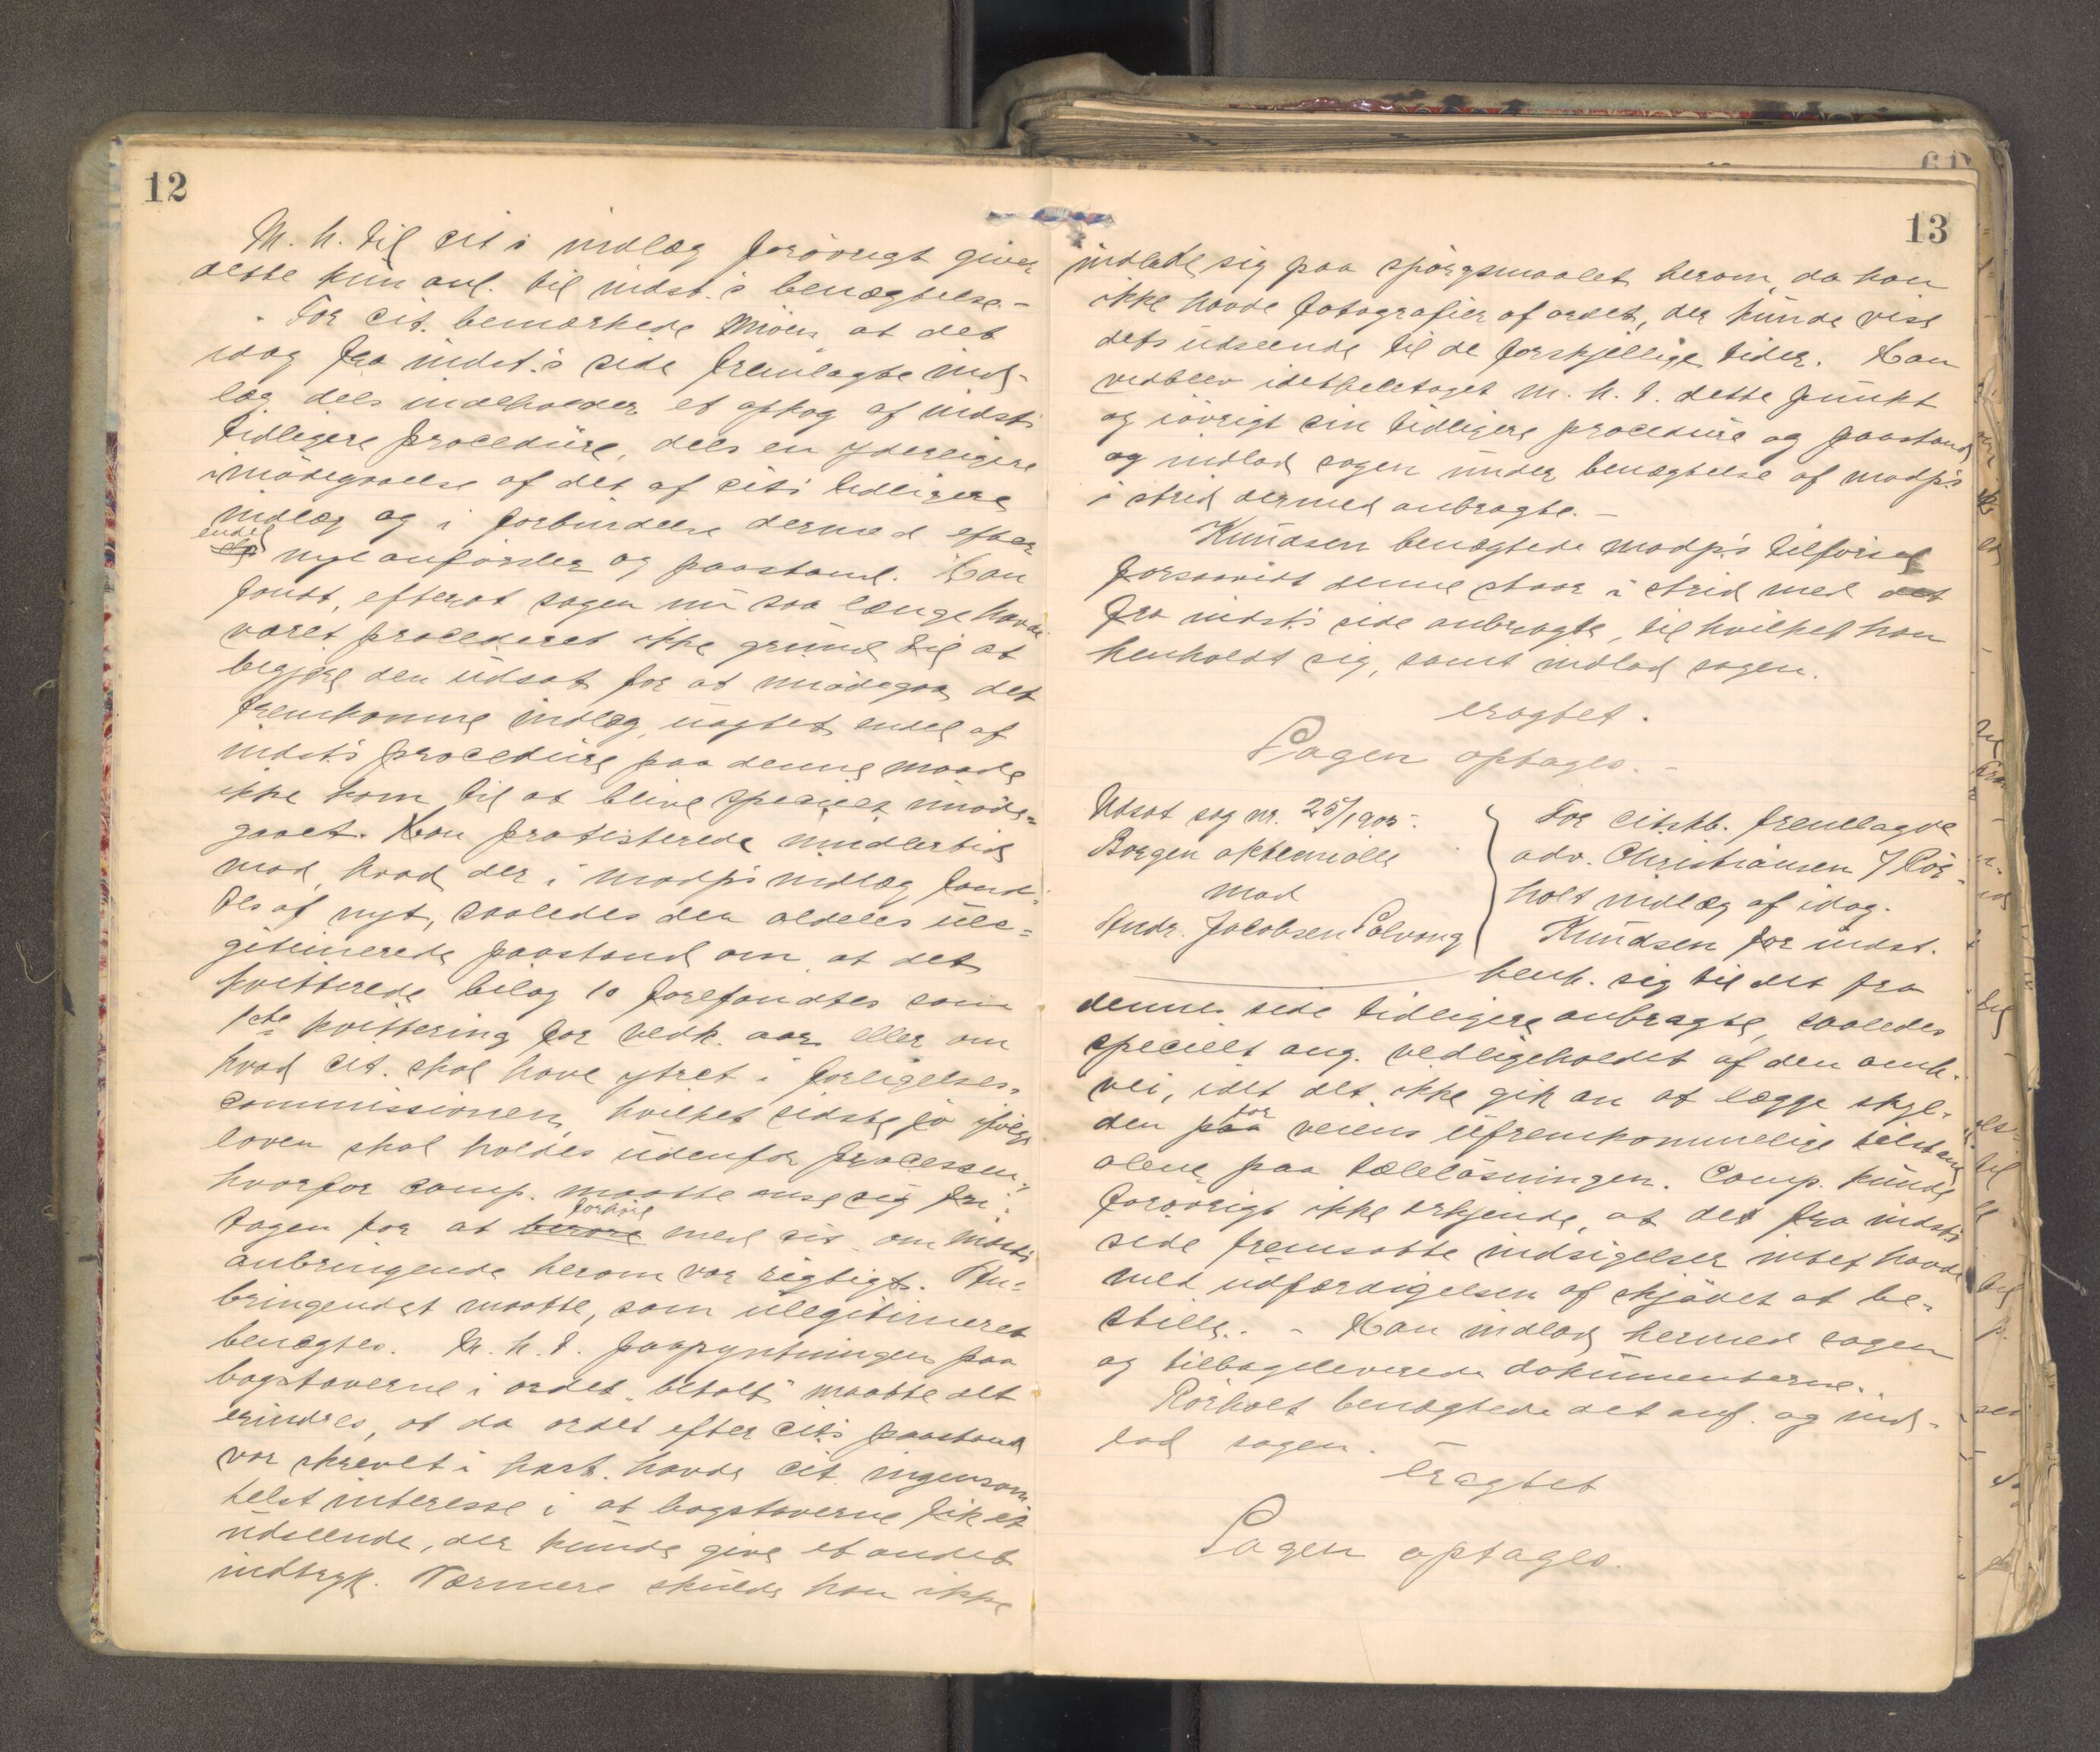 12
M. h. til cit's indlæg forøvrigt giver
dette kun anl. til indst.'s benægtelse.-
For cit. bemærkede Moen at det
idag fra indst.'s side fremlagte ind-
læg dels indeholder et opkog af indst's
tidligere procedure, dels en yderligere
imødegaaelse af det af cit's tidligere
indlæg og i forbindelse dermed efter
endel nye anførsler og paastand. Han
fandt, efterat sagen nu saa længe havde
været procederet ikke grund til at
begjære den udsat for at imødegaa det
fremkomne indlæg, uagtet endel af
indst's procedure paa denne maade
ikke kom til at blive specielt imøde-
gaaet. Han protesterede imidlertid
mod, hvad der i modp's indlæg fand-
tes af nyt, saaledes den aldeles ule-
gitimerede paastand om at det
kvitterede bilag 10 forefandtes som
1ste kvittering for vedk. aar eller om
hvad cit. skal have ytret i forligelses-
commissionen, hvilket sidste jo ifølge
loven skal holdes udenfor processen,
hvorfor comp. maatte anse sig fri-
tagen for at berøre forhøre med cit. om indst's
anbringende herom var rigtigt. An-
bringendet maatte, som ulegitimeret
benægtes. M. h. t. paapyntningen paa
bogstaverne i ordet "betalt" maatte det
erindres, at da ordet efter cit's paastand
var skrevet i hast. havde cit. ingensom-
helst interesse i at bogstaverne fik et
udseende, der kunde give et andet
indtryk. Nærmere skulde han ikke
13
indlade sig paa spørgsmaalet herom, da han
ikke havde fotografier af ordet, der kunde vise
dets udseende til de forskjellige tider. Han
vedblev idetheletaget m. h. t. dette punkt
og iøvrigt sin tidligere procedure og paastand
og indlod sagen under benægtelse af modp's
i strid dermed anbragte.-
Knudsen benægtede modp's tilførsel
forsaavidt denne staar i strid med det
fra indst's side anbragte, til hvilket han
henholdt sig, samt indlod sagen.
eragtet.
Sagen optages.-
Udsat sag nr. 25/1905.
Borgen aktiemølle
mod
Andr. Jacobsen Solvang
For citstb. fremlagde
adv. Christiansen / Rör-
holt indlæg af idag.
Knudsen for indst.
henh. sig til det fra
dennes side tidligere anbragte, saaledes
specielt ang. vedligeholdet af den omh.
vei, idet det ikke gik an at lægge skyl-
den paa for veiens ufremkommelige tilstand
alene paa tæleløsningen. Comp. kunde
forøvrigt ikke erkjende, at det fra indst's
side fremsatte indsigelser intet havde
med udfærdigelsen af skjødet at be-
stille. - Han indlod hermed sagen
og tilbageleverede dokumenterne.
Rörholt benægtede det anf. og ind-
lod sagen.
Eragtet
Sagen optages.